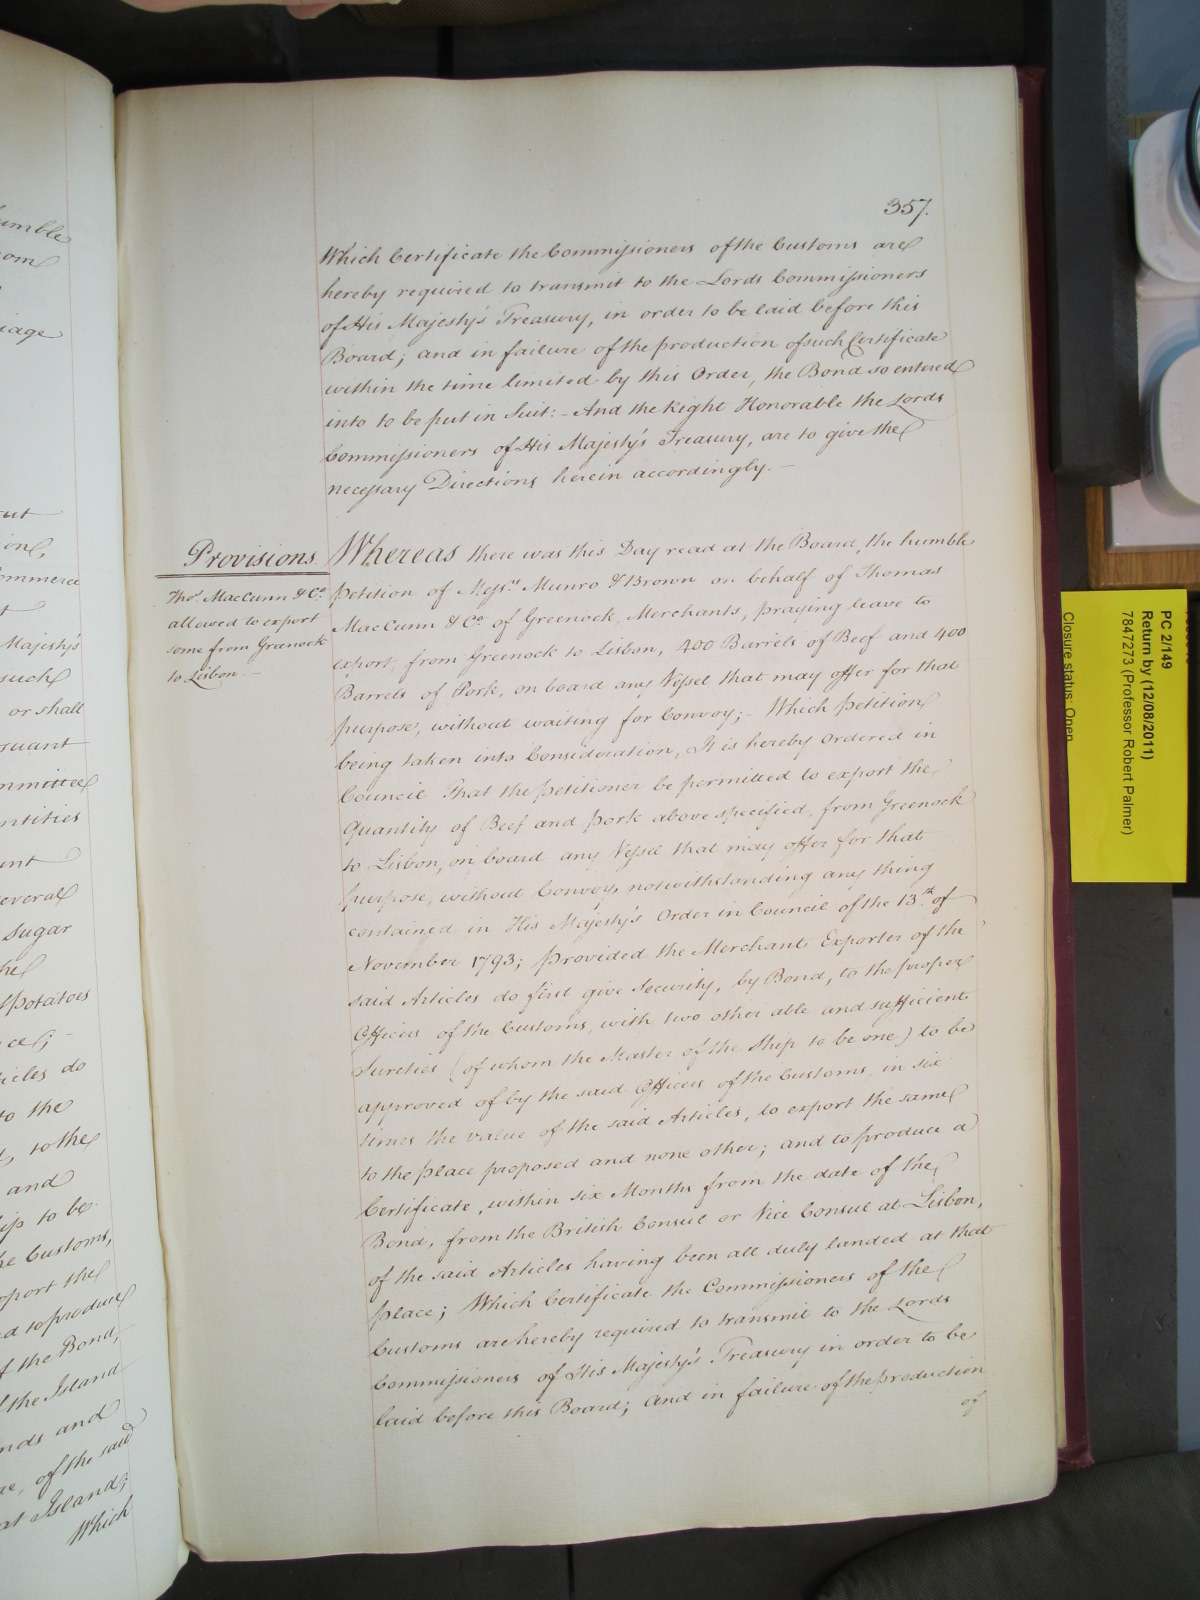 umble
om
iage
ut
ion,
ommerce
t
Majesty's
such
or shall
suant
mmittee
ntities
unt
everal
Sugar
he
Potatoes
ce;
icles do
to the
, to the
and
ip to be
he Customs,
xport the
nd to produce
f the Bond,
f the Island
nds and
ue, of the said
at Island;
Which
357.
Which Certificate the Commissioners of the Customs are
hereby required to transmit to the Lords Commissioners
of His Majesty's Treasury, in order to be laid before this
Board; and in failure of the production of such Certificate
within the time limited by this Order, the Bond so entered
into to be put in Suit:- And the Right Honorable the Lords
Commissioners of His Majesty's Treasury, are to give the
necessary Directions herein accordingly. —
Provisions
Thos. MacCunn & Co.
allowed to export
some from Greenock
to Lisbon —
Whereas there was this Day read at the Board, the humble
petition of Messrs. Munro & Brown on behalf of Thomas
MacCunn & Co. of Greenock, Merchants, praying leave to
export, from Greenock to Lisbon, 400 Barrels of Beef and 400
Barrels of Pork, on board any Vessel that may offer for that
purpose, without waiting for Convoy;- Which petition
being taken into Consideration, It is hereby Ordered in
Council That the petitioner be permitted to export the
Quantity of Beef and Pork above specified, from Greenock
to Lisbon, on board any Vessel that may offer for that
purpose, without Convoy, notwithstanding any thing
contained in His Majesty's Order in Council of the 13th. of
November 1793; provided the Merchant Exporter of the
said Articles do first give Security, by Bond, to the proper
Officers of the Customs, with two other able and sufficient
Sureties (of whom the Master of the Ship to be one) to be
approved of by the said Officers of the Customs, in six
times the value of the said Articles, to export the same
to the place proposed and none other; and to produce a
Certificate, within six Months from the date of the
Bond, from the British Consul or Vice Consul at Lisbon,
of the said Articles having been all duly landed at that
place; Which Certificate the Commissioners of the
Customs are hereby required to transmit to the Lords
Commissioners of His Majesty's Treasury in order to be
laid before this Board; and in failure of the production
of
PC 2/149
Return by (12/08/2011)
7847273 (Professor Robert Palmer)
Closure status: Open